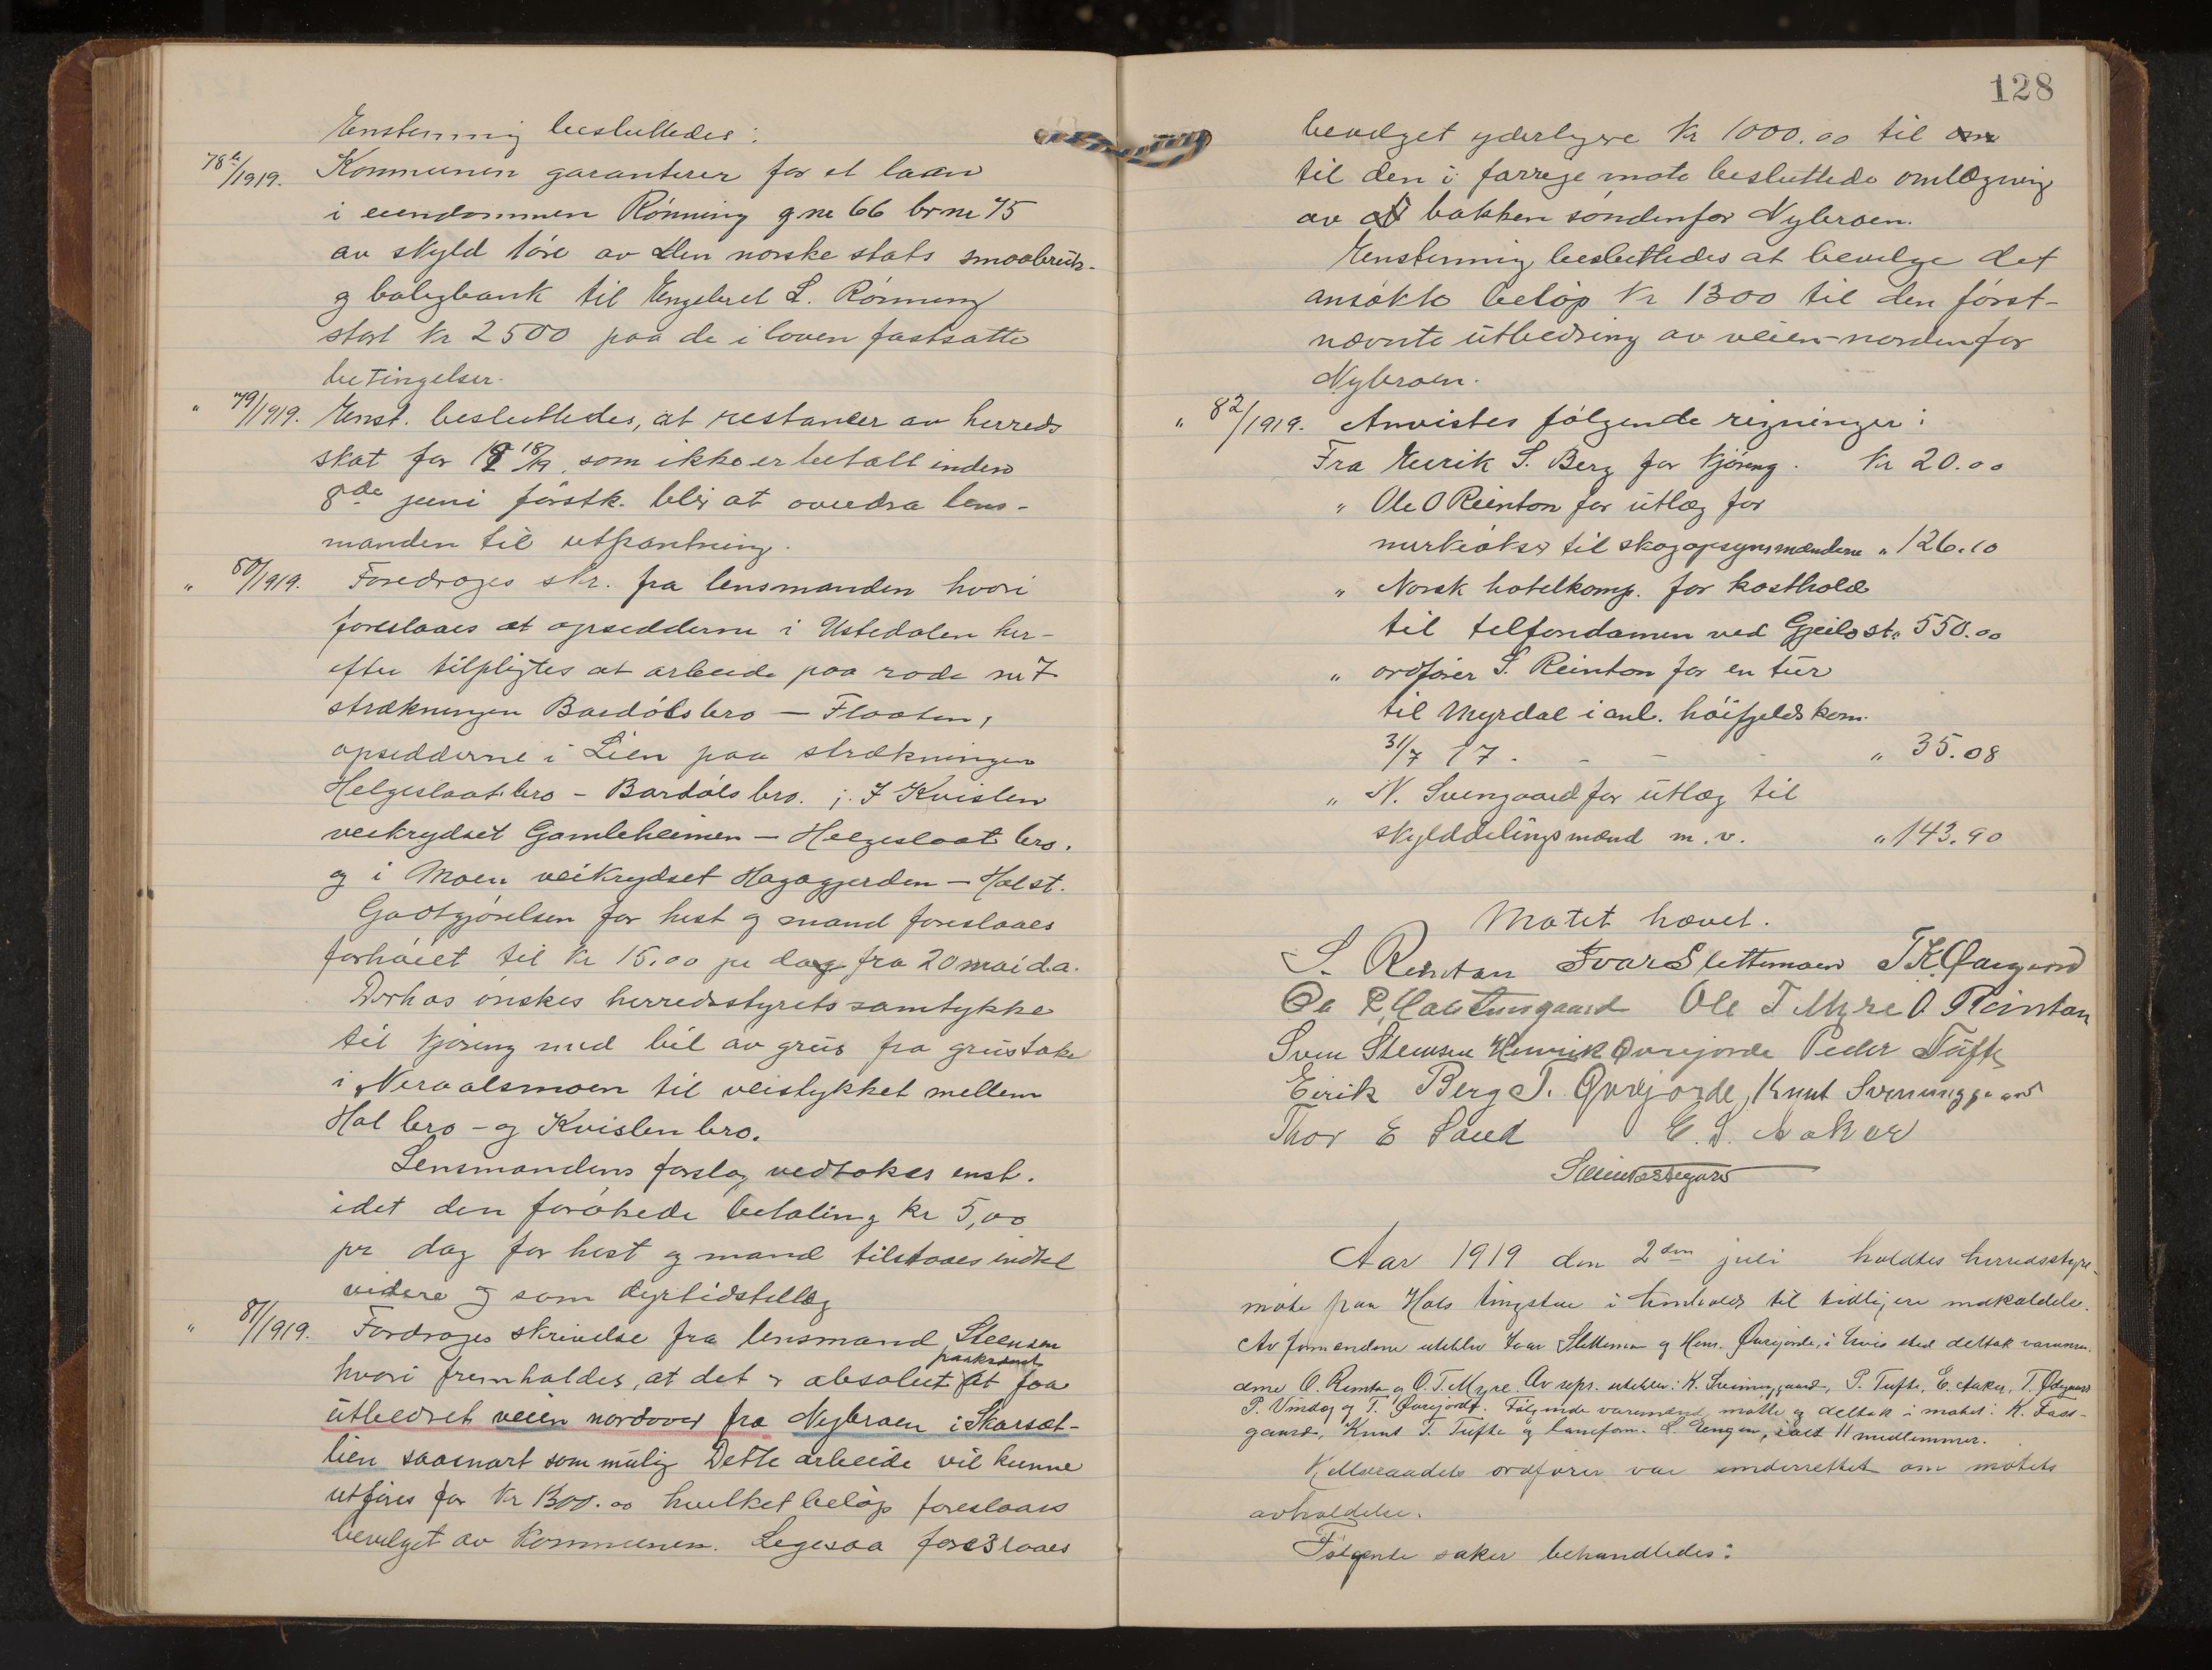 Enstemmig besluttedes:
78b/1919. Kommunen garanterer for et laan
i eiendommen Rønning gne 66 brne 75
av skyld 1 øre av Den norske stats smaabruk-
og boligbank til Engebret L. Rønning
stort Kr 2500 paa de i loven fastsatte
betingelser.
" 79/1919. Enst. besluttedes, at restancer av herreds
skat for 18/19, som ikke er betalt inden
8de juni førstk. blir at overdra lens-
manden til utpantning.
" 80/1919. Foredroges skr. fra lensmanden hvori
foreslaaes at opsedderne i Ustedalen her-
efter tilpligtes at arbeide paa rode nr 7
strækningen Bardøls bro — Flaaten,
opsedderne i Lien paa strækningen
Helgeslaat bro - Bardøls bro. ; I Kvislen
veikrydset Gamleheimen — Helgeslaat bro.
og i Moen veikrydset Hagagjerden — Hol st.
Godtgjørelsen for hest og mand foreslaaes
forhøiet til Kr 15.00 pr dag fra 20 mai d.a.
Derhos ønskes herredsstyrets samtykke
til kjøring med bil av grus fra grustake
i Neraalsmoen til veistykket mellem
Hol bro - og Kvislen bro.
Lensmandens forslag vedtokes enst.
idet den forøkede betaling kr 5,00
pr dag for hest og mand tilstaaes indtil
videre og som dyrtidstillæg
" 81/1919. Fordroges skrivelse fra lensmand Steensen
paakrævet
hvori fremholdes, at det er absolut at faa
utbedret veien nordover fra Nybroen i Skarsæt-
lien saasnart som mulig Dette arbeide vil kunne
utføres for Kr 1300.00 hvilket beløp foreslaaes
bevilget av Kommunen. Legesaa foreslaaes
128
bevilget yderligere Kr 1000.00 til om
til den i forrige møte besluttede omlægning
av bakken søndenfor Nybroen.
Enstemmig besluttedes at bevilge det
ansøkte beløp Kr 1300 til den først-
nævnte utbedring av veien nordenfor
Nybroen.
" 82/1919. Anvistes følgende regninger:
Fra Eirik S. Berg for kjøring. Kr 20.00
" Ole O Reinton for utlæg for
merkeøkser til skogopsynsmændene " 126.10
" Norsk hotelkomp. for kosthold
til telfondamen ved Gjeilo st. " 550.00
" ordfører S. Reinton for en tur
til Myrdal i anl. høifjeldskom.
31/7 17. - - - " 35.08
" N. Svengaard for utlæg til
skylddelingsmænd m.v. " 143.90
Møtet hævet.
S. Reinton Ivar Slettemoen T K Øvegaard
Ole T Myre O Reinton
Sven Steensen Henrik Øvrejorde Peder Tufte
Eirik Berg T. Øvrejorde, Knut Svenunggaard
Thor E Sand E. S. Aaker
Aar 1919 den 2den juli holdtes herredsstyre-
møte paa Hols tingstue i henhold til tidligere indkaldelse.
Av formændene uteblev Ivar Slettemoen og Hen. Øvrejorde, i hvis sted deltok varamæn-
dene O. Reinton og O. T. Myre. Av repr. uteblev: K. Svenunggaard, P. Tufte, E. Aaker, T. Ødegaard
P. Vindeg og T. Øvrejorde. Følgende varamænd møtte og deltok i møtet: K. Fass-
gaard, Knut T. Tufte og L. Rengen, ialt 11 medlemmer.
ordfører var underrettet om møtets
avholdelse.
Følgende saker behandledes: